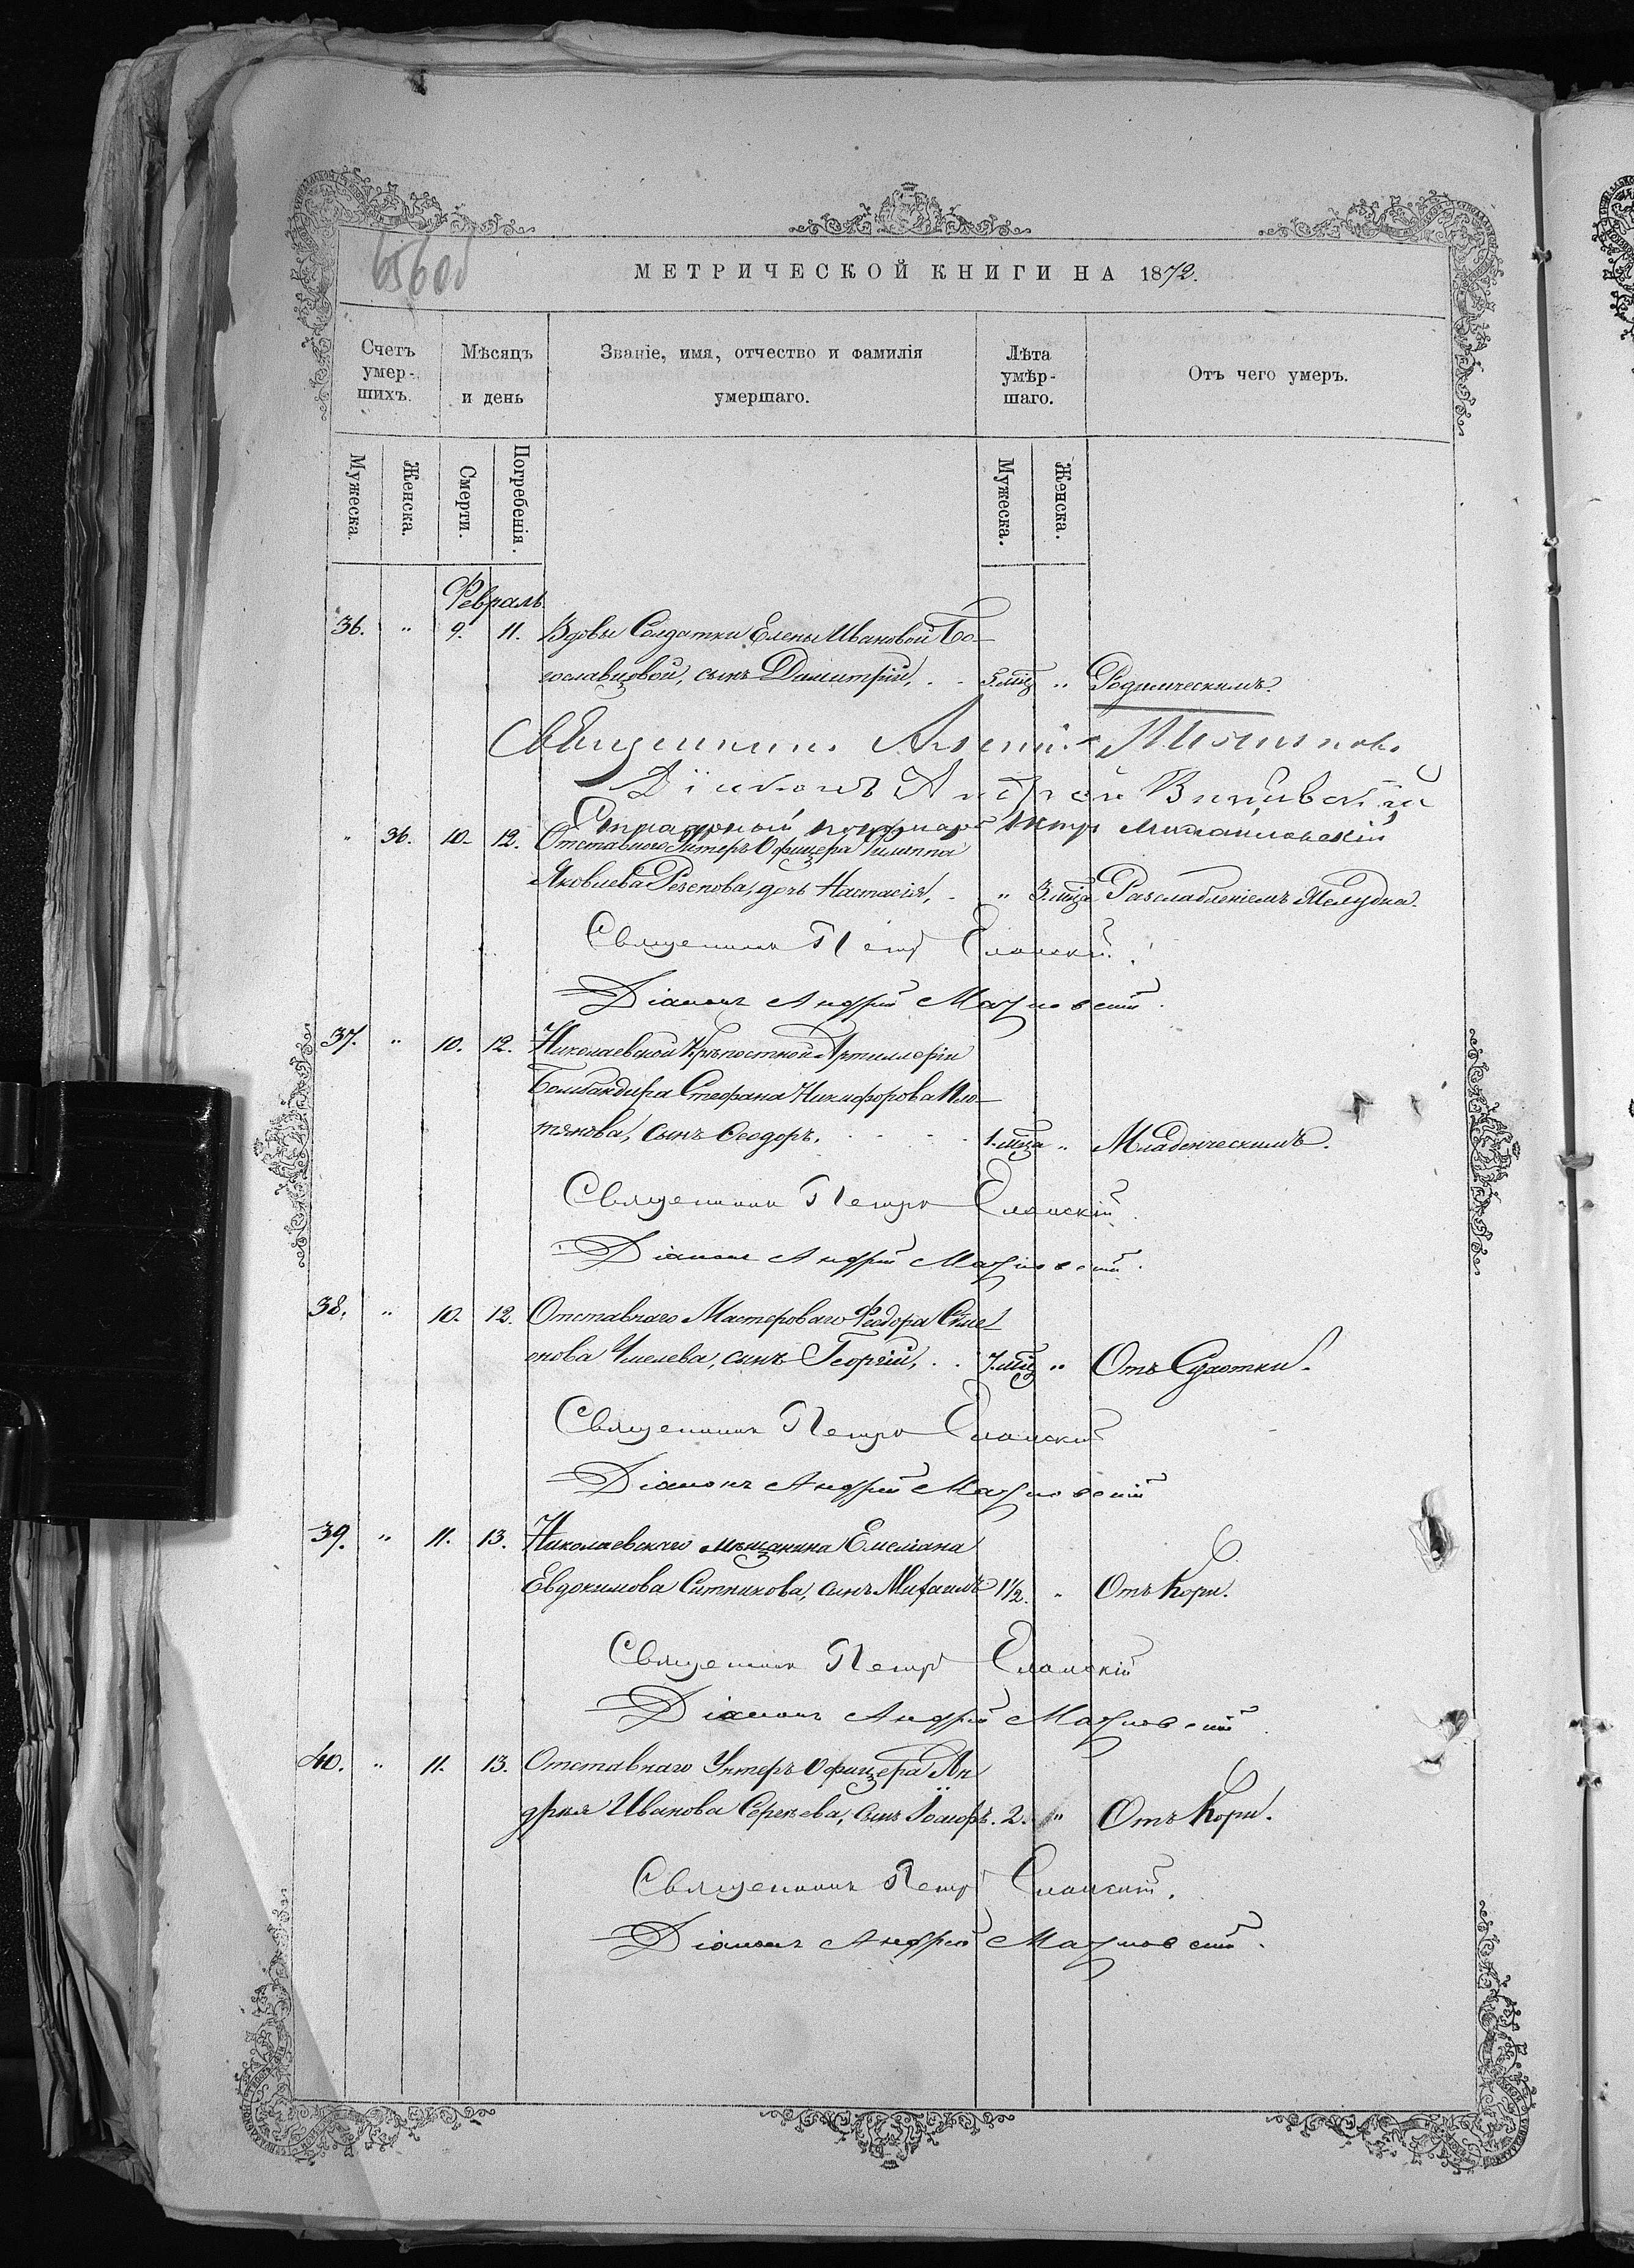 656об
МЕТРИЧЕСКОЙ КНИГИ НА 1872.
Счетъ умер-шихъ. Мѣсяцъ и день Званіе, имя, отчество и фамилія умершаго. Лѣта умѣр-шаго. Отъ чего умеръ.
Мужеска. Женска. Смерти. Погребенія. Мужеска. Женска.
Февраль
36. " 9. 11. Вдовы Солдатки Елены Ивановой Бо-
гославцовой, сынъ Димитрій, . . 5.мѣц " Родимческимъ.
Священникъ
Діаконъ
" 36. 10. 12. Отставнаго Унтеръ Офицера Филиппа
Яковлева Резепова, дочь Настасія, . " 3.мѣца Разслабленіемъ Желудка.
Священникъ Петръ Еланскій.
Діаконъ Андрей
37. " 10. 12. Николаевской Крѣпостной Артиллеріи
Бомбандира Стефана Никифорова Плю-
тякова, сынъ Ѳеодоръ. . . . . 1.мѣца " Младенческимъ.
Священникъ Петръ Еланскій.
Діаконъ Андрей
38. " 10. 12. Отставнаго Мастероваго Ѳеодора Симе-
онова Чмелева, сынъ Георгій, . . 7.мѣц " Отъ Сухотки.
Священникъ Петръ Еланскій
Діаконъ Андрей
39. " 11. 13. Николаевскаго мѣщанина Емеліана
Евдокимова Ситникова, сынъ Михаилъ 1½. " Отъ Кори.
Священникъ Петръ Еланскій
Діаконъ Андрей
40. " 11. 13. Отставнаго Унтеръ Офицера Ан-
дрея Иванова Сергѣева, сынъ 2. " Отъ Кори.
Священникъ Петръ Еланскій.
Діаконъ Андрей